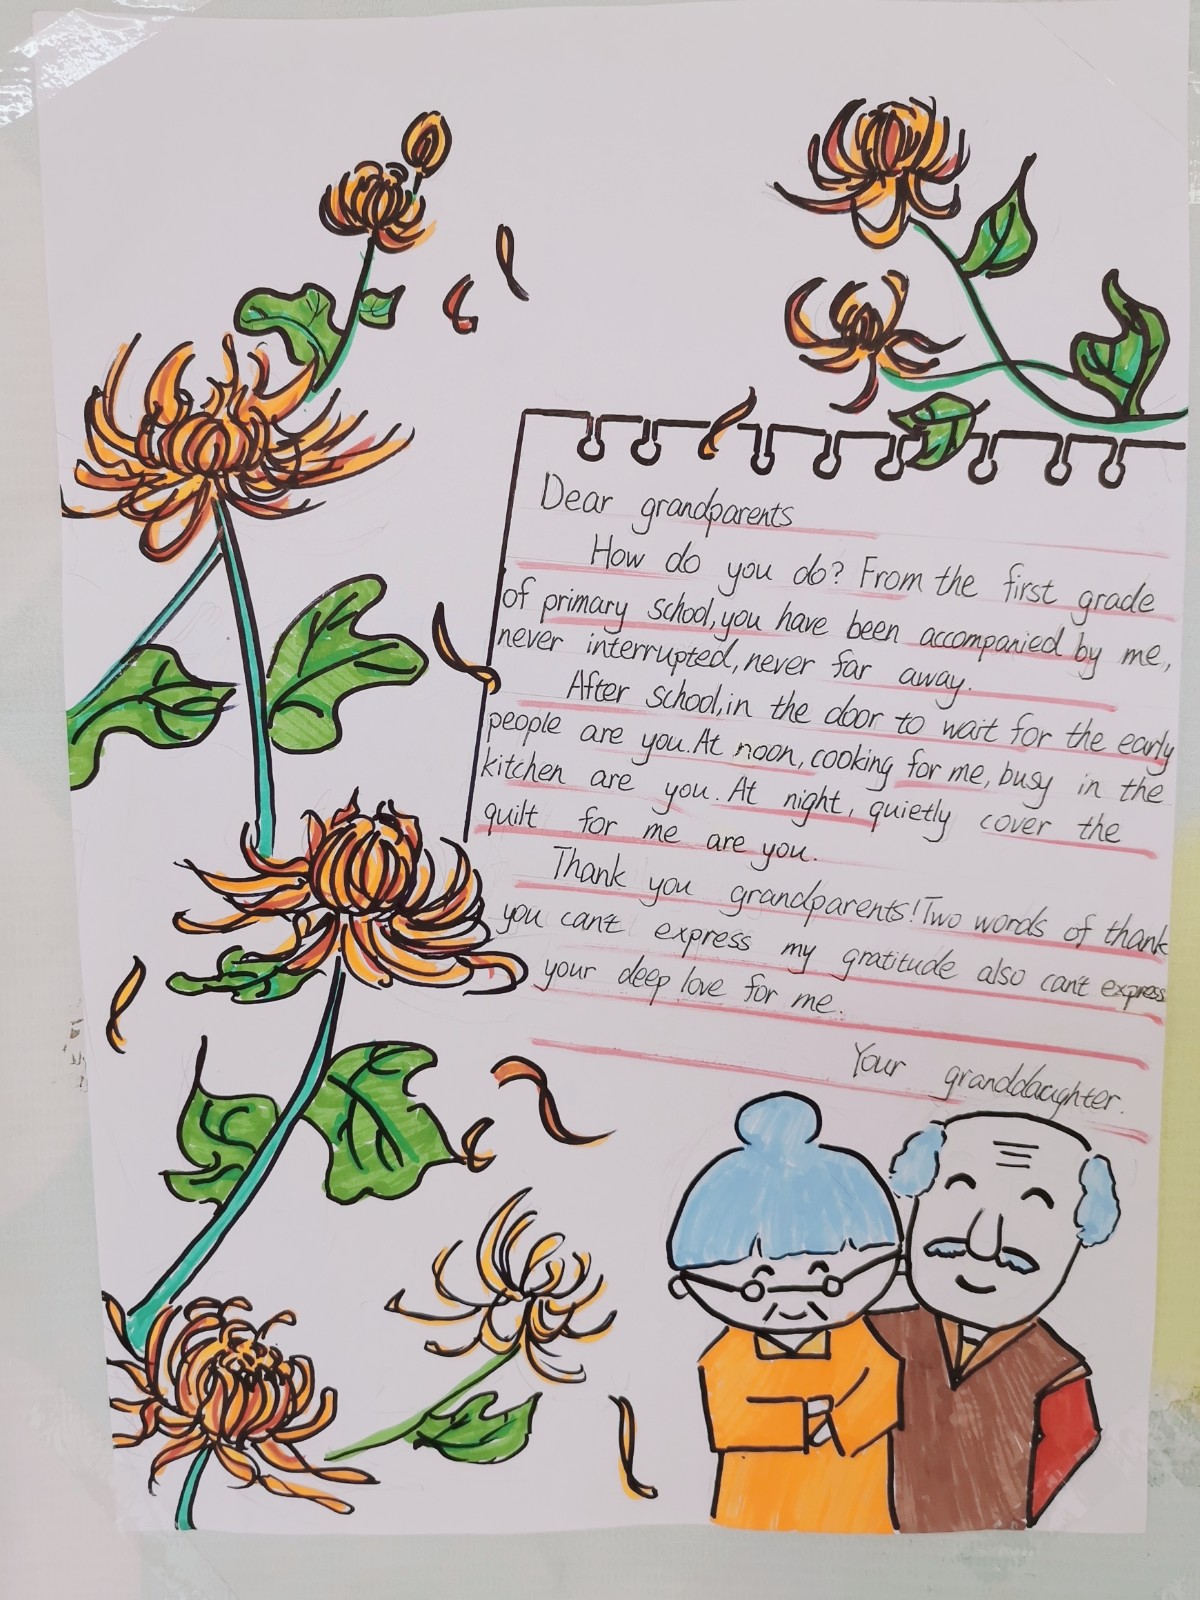 Dear grandparents
How do you do? From the first grade
of primary school, you have been accompanied by me,
never interrupted, never far away.
After school, in the door to wait for the early
people are you. At noon, cooking for me, busy in the
kitchen are you. At night, quietly cover the
quilt for me are you.
Thank you grandparents! Two words of thank
you can't express my gratitude also can't express
your deep love for me.
Your granddaughter.